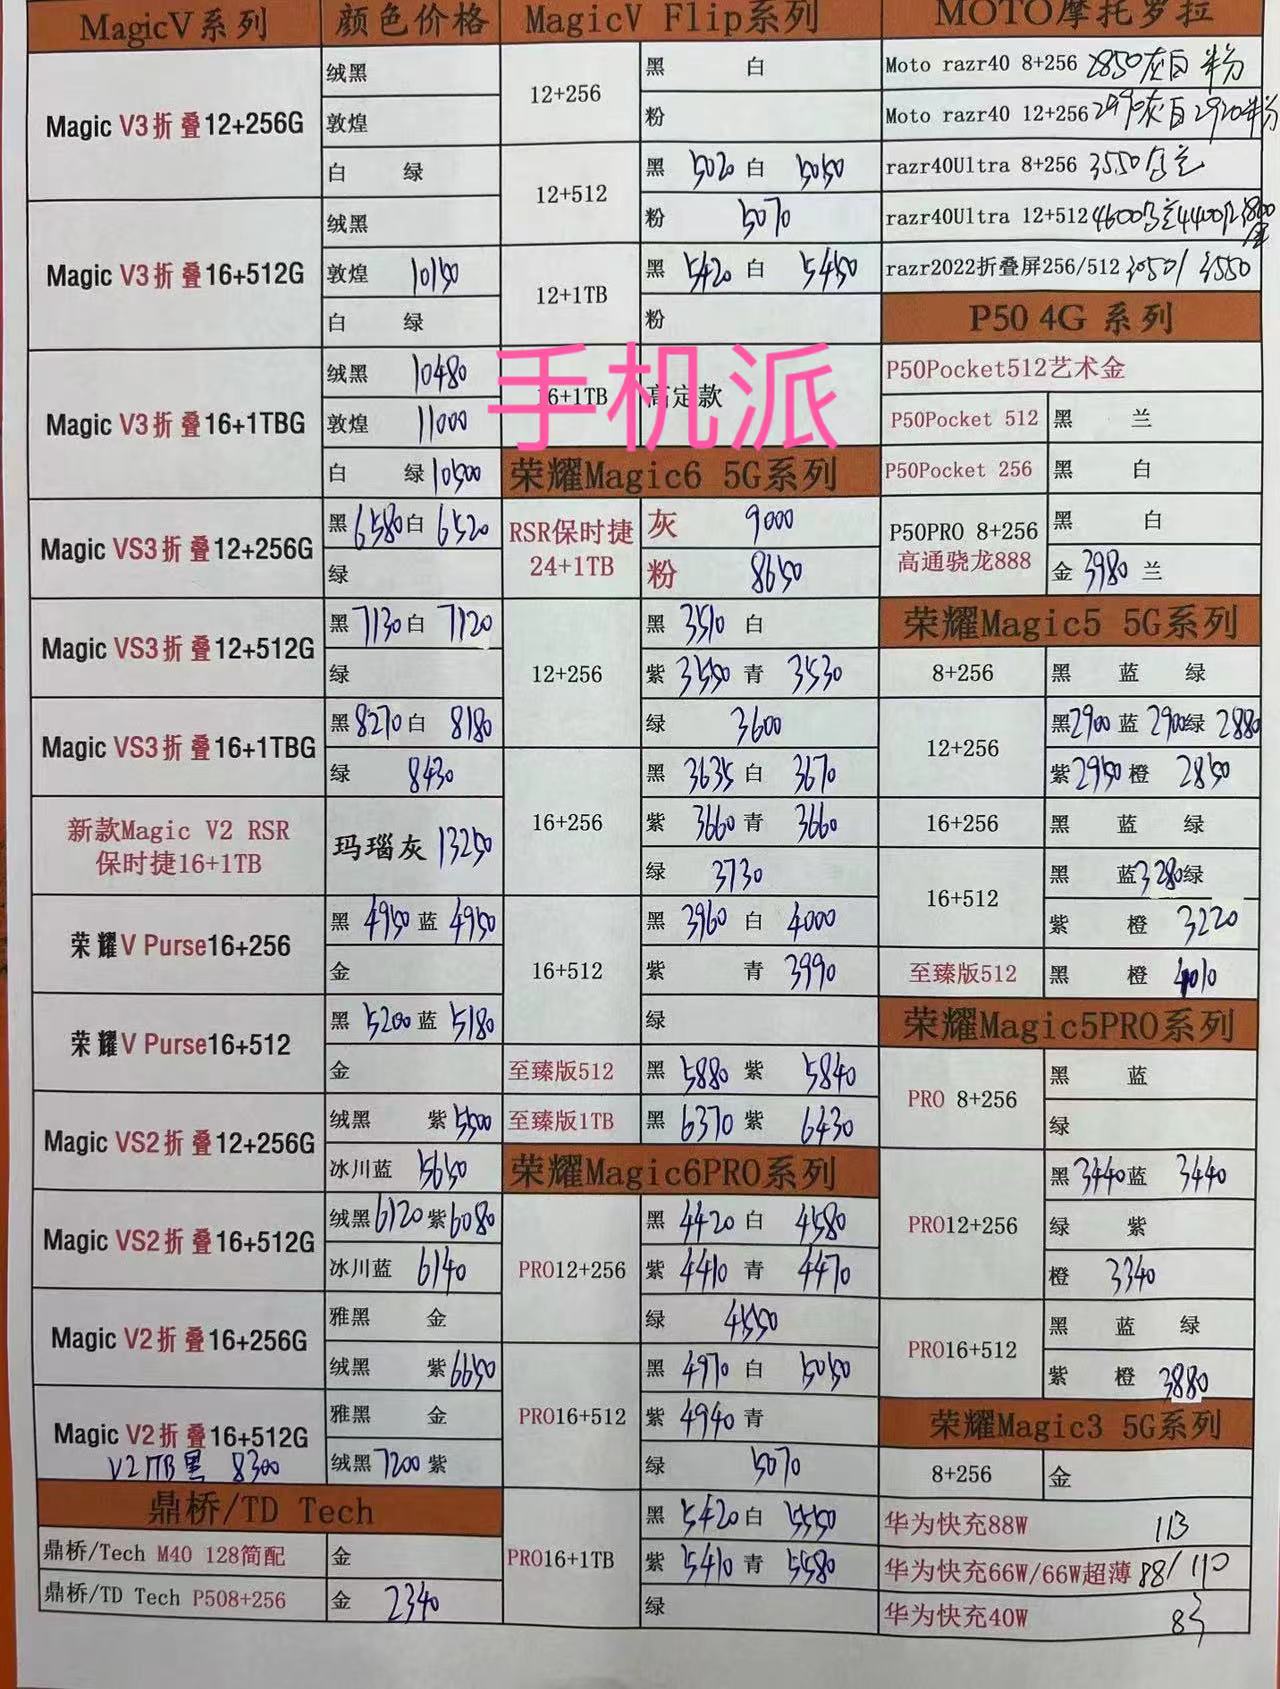 MagicV系列 颜色价格
Magic V3折叠12+256G
绒黑
敦煌
白 绿
Magic V3折叠16+512G
绒黑
敦煌 10150
白 绿
Magic V3折叠16+1TBG
绒黑 10480
敦煌 11000
白 绿 10500
Magic VS3折叠12+256G
黑 6580 白 6520
绿
Magic VS3折叠12+512G
黑 7130 白 7120
绿
Magic VS3折叠16+1TBG
黑 8270 白 8180
绿 8430
新款Magic V2 RSR
保时捷16+1TB
玛瑙灰 13250
荣耀V Purse16+256
黑 4950 蓝 4950
金
荣耀V Purse16+512
黑 5200 蓝 5180
金
Magic VS2折叠12+256G
绒黑 紫 5500
冰川蓝 5650
Magic VS2折叠16+512G
绒黑 6120 紫 6080
冰川蓝 6140
Magic V2折叠16+256G
雅黑 金
绒黑 紫 6650
Magic V2折叠16+512G
V2 1TB黑 8300
雅黑 金
绒黑 7200 紫
鼎桥/TD Tech
鼎桥/Tech M40 128简配 金
鼎桥/TD Tech P508+256 金 2340
MagicV Flip系列
12+256
黑 白
粉
12+512
黑 5020 白 5050
粉 5070
12+1TB
黑 5420 白 5450
粉
16+1TB 高定款
手机派
荣耀Magic6 5G系列
RSR保时捷
24+1TB
灰 9000
粉 8650
12+256
黑 3510 白
紫 3550 青 3530
绿 3600
16+256
黑 3635 白 3670
紫 3660 青 3660
绿 3730
16+512
黑 3960 白 4000
紫 青 3990
绿
至臻版512 黑 5880 紫 5840
至臻版1TB 黑 6370 紫 6430
荣耀Magic6PRO系列
PRO12+256
黑 4420 白 4580
紫 4410 青 4470
绿 4550
PRO16+512
黑 4970 白 5050
紫 4940 青
绿 5070
PRO16+1TB
黑 5420 白 5550
紫 5410 青 5580
绿
MOTO摩托罗拉
Moto razr40 8+256 2850灰白 粉
Moto razr40 12+256 2990灰白 2920粉
razr40Ultra 8+256 3550
razr40Ultra 12+512 4600 4400 3800
razr2022折叠屏256/512 3050/ 3550
P50 4G 系列
P50Pocket512艺术金
P50Pocket 512 黑 兰
P50Pocket 256 黑 白
P50PRO 8+256
高通骁龙888
黑 白
金 3980 兰
荣耀Magic5 5G系列
8+256 黑 蓝 绿
12+256
黑 2900 蓝 2900 绿 2880
紫 2950 橙 2850
16+256 黑 蓝 绿
16+512
黑 蓝 3280 绿
紫 橙 3220
至臻版512 黑 橙 4010
荣耀Magic5PRO系列
PRO 8+256
黑 蓝
绿
PRO12+256
黑 3440 蓝 3440
绿 紫
橙 3340
PRO16+512
黑 蓝 绿
紫 橙 3880
荣耀Magic3 5G系列
8+256 金
华为快充88W 113
华为快充66W/66W超薄 88/110
华为快充40W